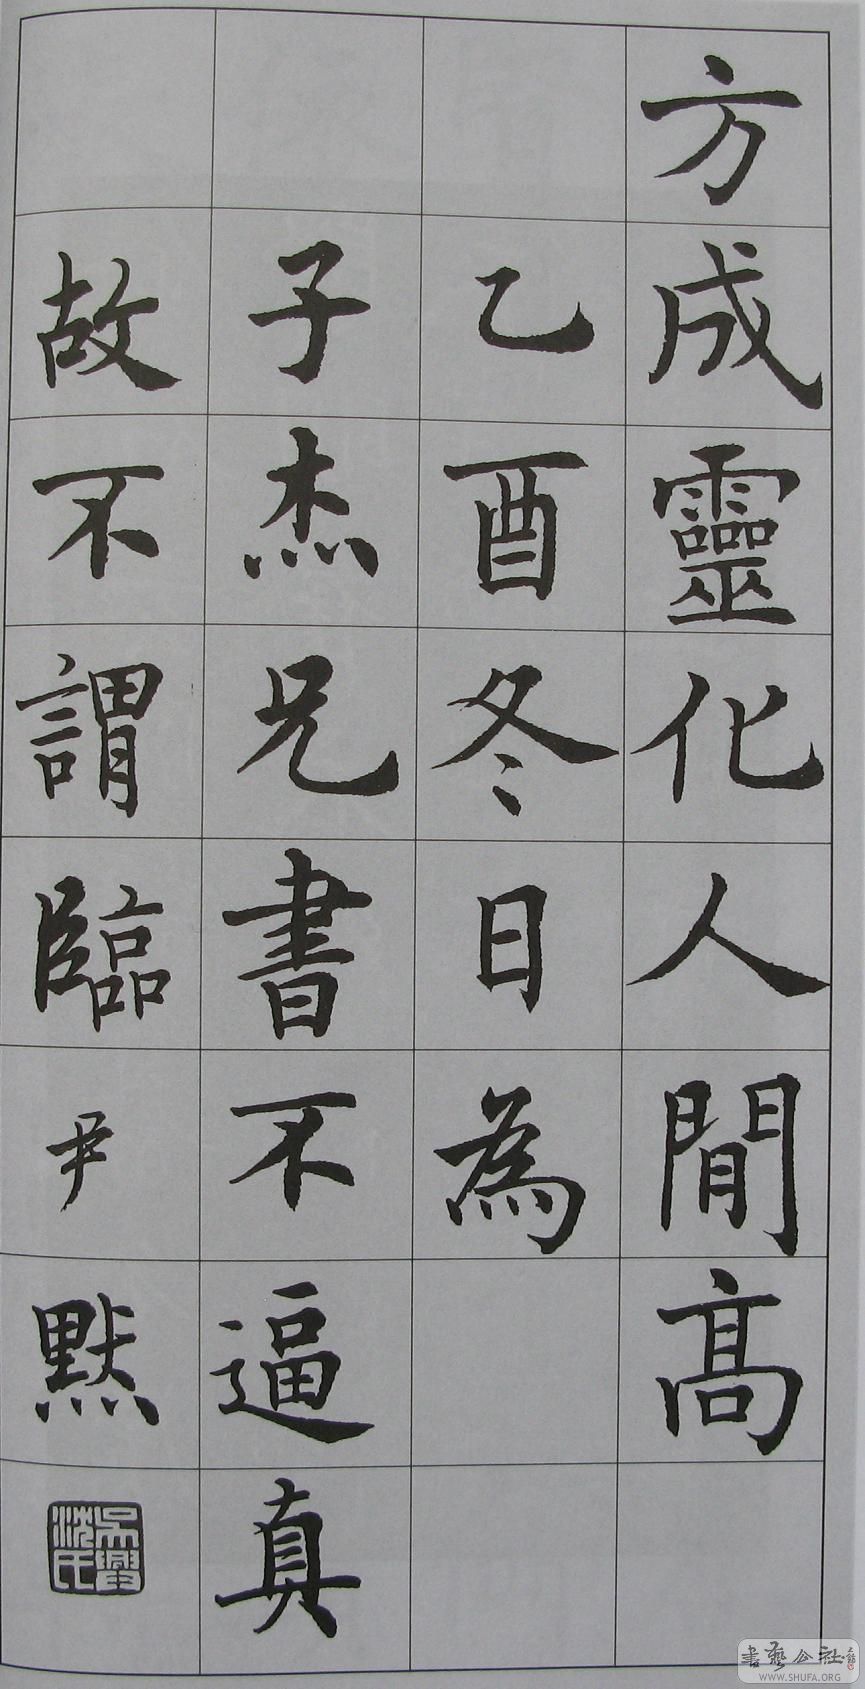 方成靈化人間高
乙酉冬日為
子杰兄書不逼真
故不謂臨尹默
吳興沈氏
書藝公社
WWW.SHUFA.ORG